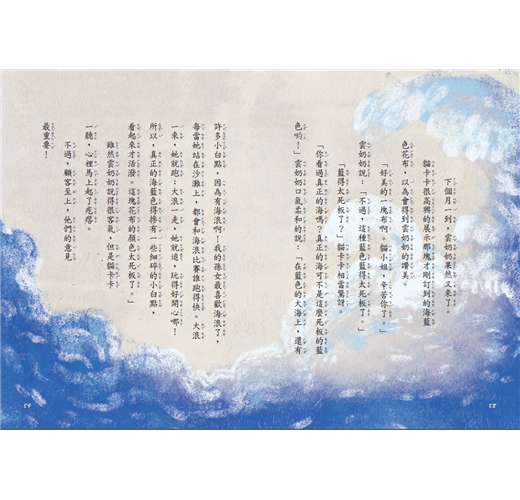 下個月一到，雲奶奶果然又來了。
貓卡卡很高興的展示那塊才剛訂到的海藍
色花布，以為會得到雲奶奶的讚美。
「好美的一塊布啊。貓小姐，辛苦你了。」
雲奶奶說：「不過，這種藍色藍得太死板了。」
「藍得太死板了？」貓卡卡相當驚訝。
「你看過真正的海嗎？真正的海可不是這麼死板的藍
色喲！」雲奶奶口氣柔和的說：「在藍色的大海上，還有
許多小白點，因為有海浪啊！我的孫女最喜歡海浪了，
每當她站在沙灘上，都會和海浪比賽誰跑得快。大浪
一來，她就跑；大浪一走，她就追，玩得好開心哪！
所以，真正的海藍色得摻有一些細碎的小白點，
看起來才活潑。這塊花布的顏色太死板了。」
雖然雲奶奶說得很客氣，但是貓卡卡
一聽，心裡馬上起了疙瘩。
不過，顧客至上，他們的意見
最重要！